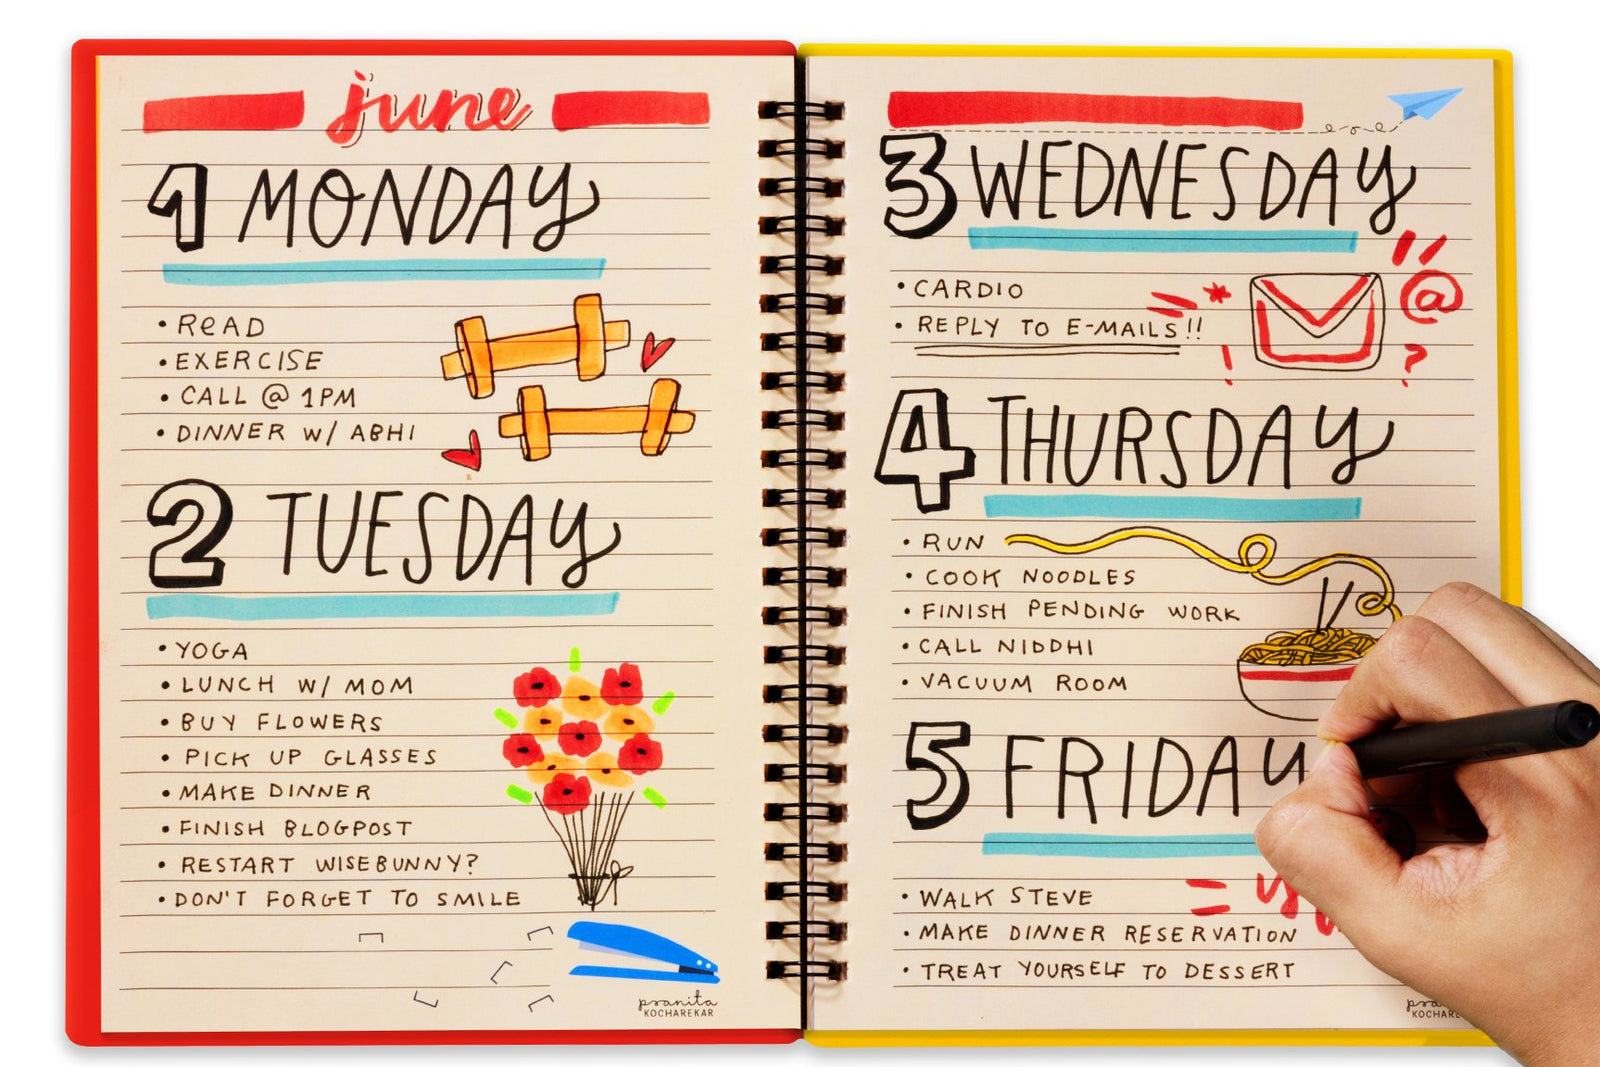 june
1 MONDAY
• READ
• EXERCISE
• CALL @ 1PM
• DINNER W/ ABHI
2 TUESDAY
• YOGA
• LUNCH W/ MOM
• BUY FLOWERS
• PICK UP GLASSES
• MAKE DINNER
• FINISH BLOGPOST
• RESTART WISEBUNNY?
• DON'T FORGET TO SMILE
pranita
KOCHAREKAR
3 WEDNESDAY
• CARDIO
• REPLY TO E-MAILS!!
* @ ! ?
4 THURSDAY
• RUN
• COOK NOODLES
• FINISH PENDING WORK
• CALL NIDDHI
• VACUUM ROOM
5 FRIDAY
• WALK STEVE
• MAKE DINNER RESERVATION
• TREAT YOURSELF TO DESSERT